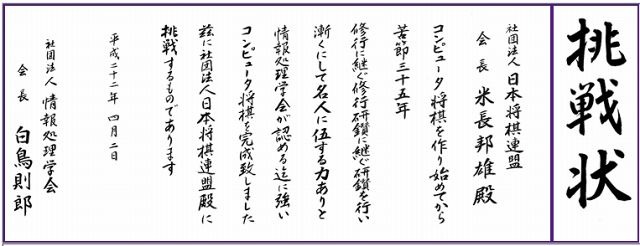 挑戦状
社団法人 日本将棋連盟
会長 米長邦雄 殿
コンピュータ将棋を作り始めてから
苦節三十五年
修行に継ぐ修行研鑽に継ぐ研鑽を行い
漸くにして名人に伍する力ありと
情報処理学会が認める迄に強い
コンピュータ将棋を完成致しました
茲に社団法人日本将棋連盟殿に
挑戦するものであります
平成二十二年 四月二日
社団法人 情報処理学会
会長 白鳥則郎